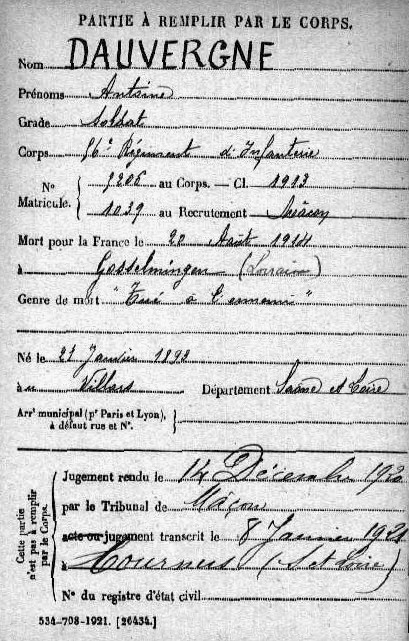 PARTIE À REMPLIR PAR LE CORPS.
Nom DAUVERGNE
Prénoms Antoine
Grade Soldat
Corps 56e Régiment d'Infanterie
N° Matricule. { 7206 au Corps. — Cl. 1913
1039 au Recrutement Mâcon
Mort pour la France le 20 Août 1914
à Gosselmingen (Lorraine)
Genre de mort "Tué à l'ennemi"
Né le 21 Janvier 1893
à Villars Département Saône et Loire
Arrt municipal (pr Paris et Lyon), à défaut rue et N°.
Cette partie n'est pas à remplir par le Corps.
Jugement rendu le 14 Décembre 1920
par le Tribunal de Mâcon
acte ou jugement transcrit le 8 Janvier 1921
à Tournus (S et Loire)
N° du registre d'état civil
534-708-1921. [26434.]